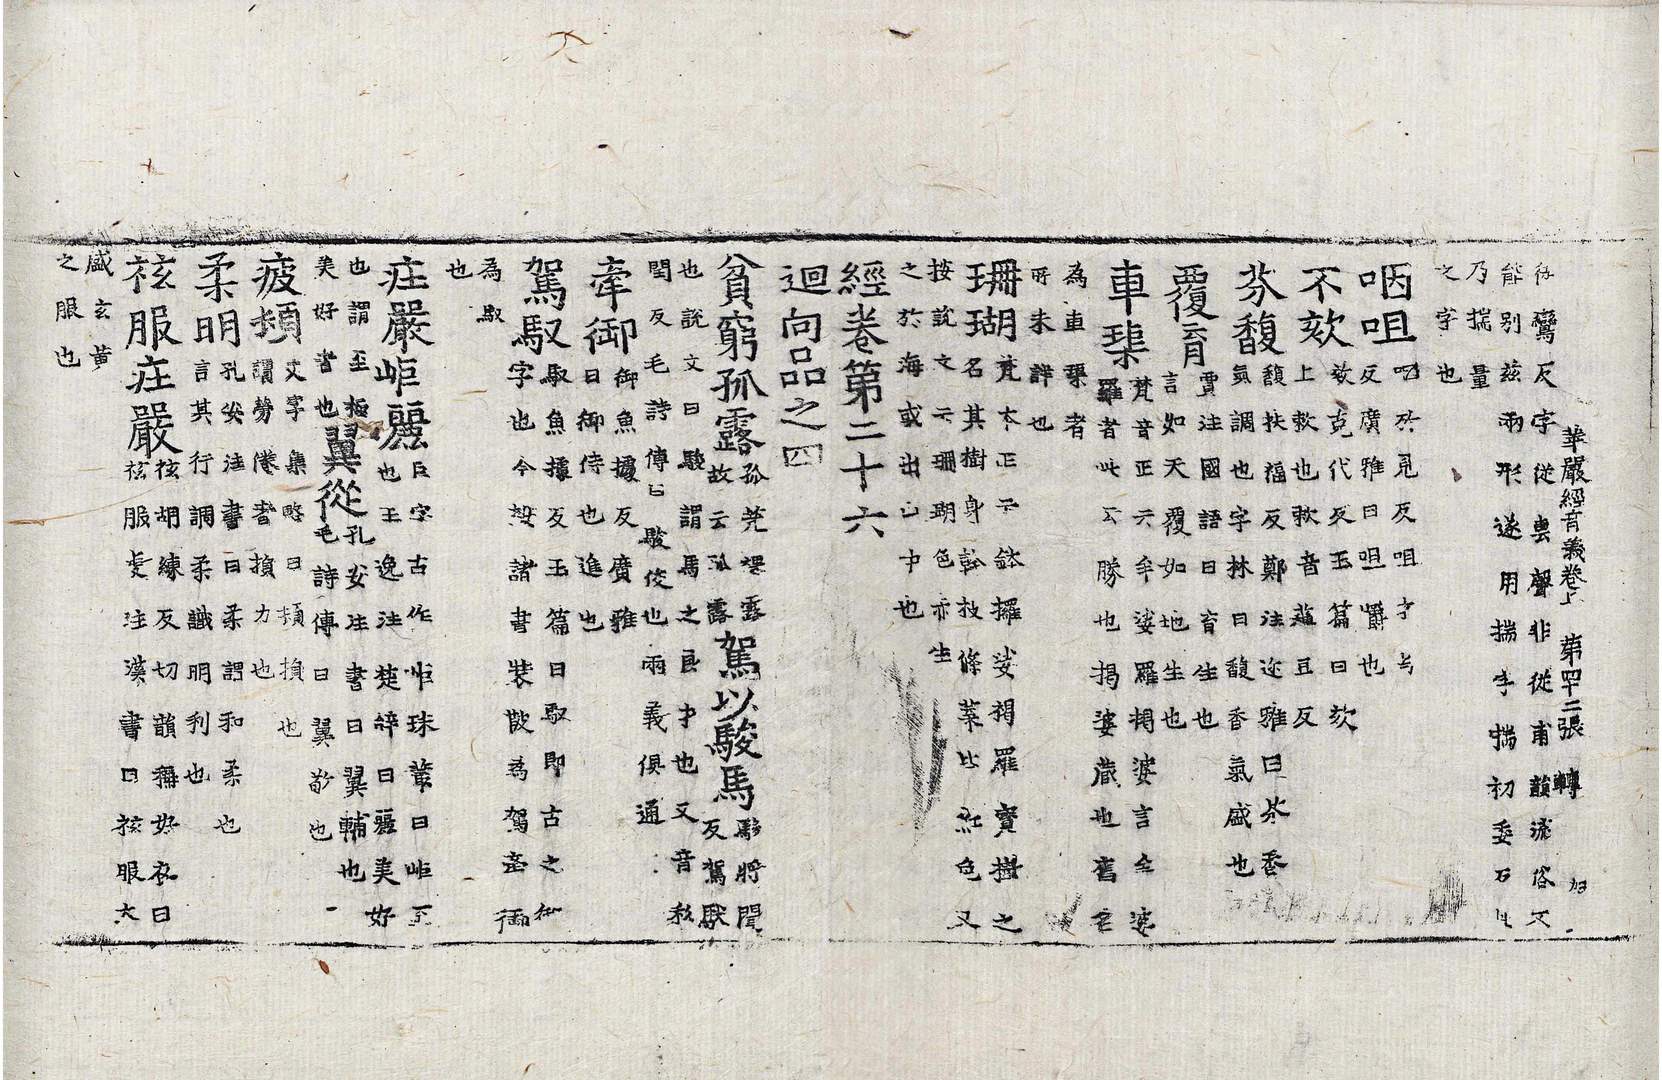 華嚴經音義卷上 第四二張 轉
傳鸞反字從專聲非從甫韻流俗不
能別茲兩形遂用揣字揣初委反
乃揣量
之字也
咽咀 咽於見反咀才与
反廣雅曰咀嚼也
不欬 欬克代反玉篇曰欬
上救也救音蘓豆反
芬馥 馥扶福反鄭注迩雅曰芬香
氣調也字林曰馥香氣盛也
覆育 賈注國語曰育生也
言如天覆如地生也
車𤦲 梵音正云牟娑羅揭婆言牟娑
羅者此云勝也揭婆藏也舊名
為車𤦲者
所未詳也
珊瑚 梵本正云鉢攞娑揭羅寶樹之
名其樹身幹枝條葉比紅色又
按說文云珊瑚色赤生
之於海或出山中也
經卷第二十六
迴向品之四
貧窮孤露 孤莞煢露
故云孤露 駕以駿馬 駿將閏
反駕馱
也說文曰駿謂馬之良才也又音私
閏反毛詩傳曰駿俊也兩義俱通
牽御 御魚據反廣雅
曰御侍也進也
駕馭 馭魚據反玉篇曰馭即古之御
字也今按諸書裝馭為駕牽御
為馭
也
庄嚴岠麗 巨字古作岠珠叢曰岠至
也王逸注楚辞曰麗美好
也謂至極
美好者也 翼從 孔安注書曰翼輔也
毛詩傳曰翼敬也
疲頓 文字集略曰頓損也
謂勞倦者損力也
柔明 孔安注書曰柔謂和柔也
言其行調柔識明利也
袨服庄嚴 袨胡練反切韻稱好衣曰
袨服虔注漢書曰袨服大
盛玄黃
之服也